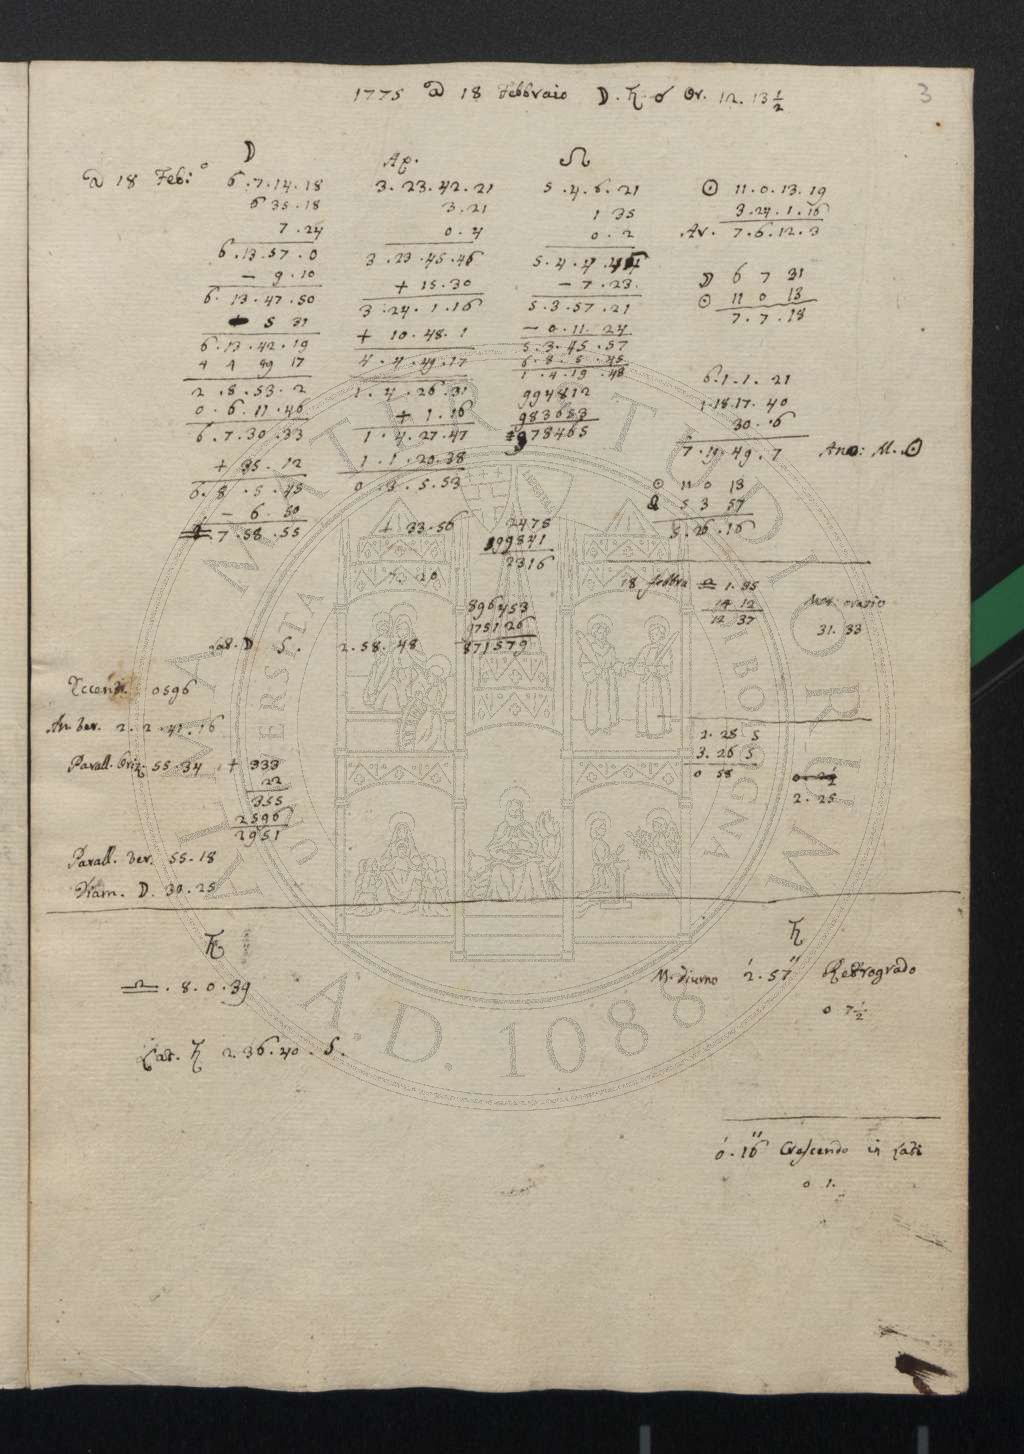 3
1775 a 18 Febbraio ☽. ♄. ☌ Or. 12. 13 1/2
☽
Ap.
☊
a 18 Feb:° 6.7.14.18
6 35.18
7.24
6.13.57.0
- 9.10
6.13.47.50
5 31
6.13.42.19
4 4 49 17
2.8.53.2
0.6.11.46
6.7.30.33
+ 35.12
6.8.5.45
- 6.50
7.58.55
3.23.42.21
3.21
0.4
3.23.45.46
+ 15.30
3.24.1.16
+ 10.48.1
4.4.49.17
1.4.26.31
+ 1.16
1.4.27.47
1.1.20.38
0.3.5.53
+ 33.56
5.4.6.21
1 35
0.2
5.4.4
- 7.23
5.3.57.21
- 0.11.24
5.3.45.57
6.8.5.45
1.4.19.48
994812
983653
978465
2475
999841
2316
896453
175126
871579
☉ 11.0.13.19
3.24.1.16
Ar. 7.6.12.3
☽ 6 7 31
☉ 11 0 13
7.7.18
6.1.1.21
1.18.17.40
30.6
7.19.49.7 Ano: M. ☉
☉ 11 0 13
☊ 5 3 57
5.26.16
18 febbra ♎ 1.35
14 12
12 37
Mot. orario
31.33
Lat. ☽ S. 2.58.48
Eccentr. 0596
An. ver. 2.2.41.16
Parall. Oriz. 55.34 + 333
22
355
2596
2951
Parall. ver. 55.18
Diam. ☽. 30.25
2.28 5
3.26 5
0 58
2.25
♄
♎.8.0.39
Lat. ♄ 2.36.40. S.
♄
M. diurno 2'.57'' Retrogrado
0 7 1/2
0'.16'' Crescendo in Lati
0 1.
ALMA MATER STUDIORUM
UNIVERSITÀ DI BOLOGNA
A.D. 1088